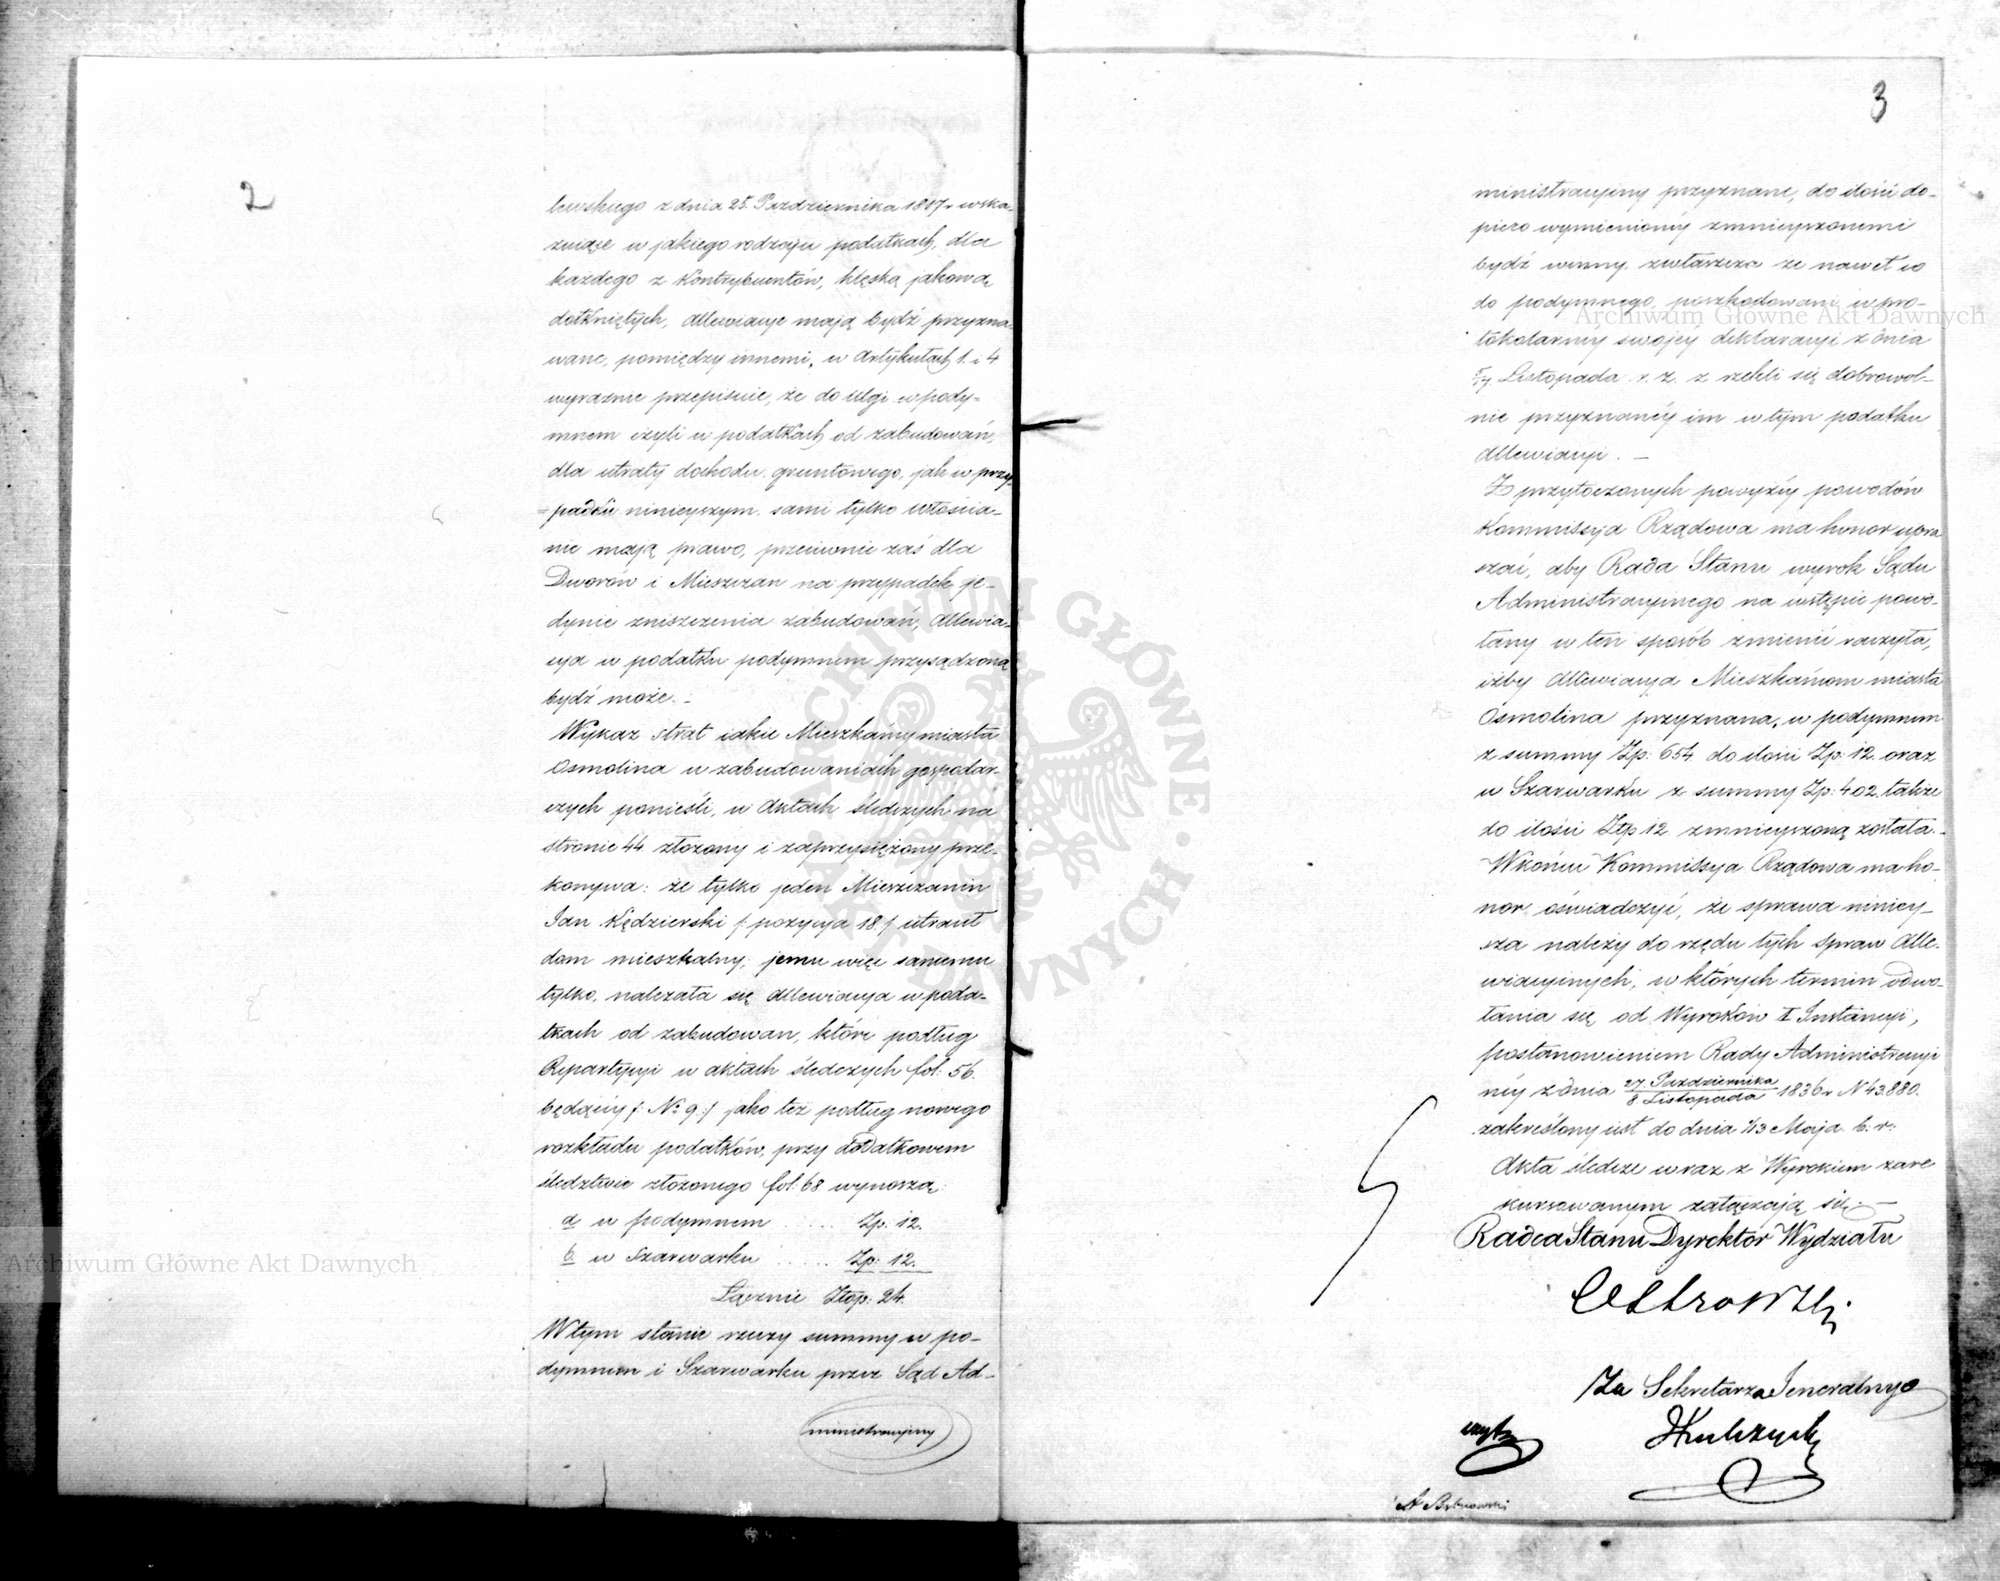 2
lewskiego z dnia 25. Października 1817 r. wska-
zujące w jakiego rodzaju podatkach, dla
każdego z Kontrybuentów, klęską jakową
dotkniętych, allewiacye mają bydź przyzna-
wane, pomiędzy innemi, w Artykułach 1. i 4
wyraźnie przepisuie, że do ulgi w pody-
mnem czyli w podatkach od zabudowań,
dla utraty dochodu gruntowego, jak w przy-
padku ninieyszym sami tylko włościa-
nie mają prawo, przeciwnie zaś dla
Dworów i Mieszczan na przypadek je-
dynie zniszczenia zabudowań, allewia-
cya w podatku podymnem przysądzoną
bydź może. –
Wykaz strat iakie Mieszkańcy miasta
Osmolina w zabudowaniach gospodar-
czych ponieśli, w aktach śledczych na
stronie 44 złożony i zaprzysiężony prze-
konywa: że tylko jeden Mieszczanin
Jan Kędzierski /: pozycya 18 :/ utracił
dom mieszkalny, jemu więc samemu
tylko, należała się allewiacya w poda-
tkach od zabudowan, które podług
Repartycyi w aktach śledczych fol: 56.
będącéy /: № 9 :/ jako też podług nowego
rozkładu podatków, przy dodatkowem
śledztwie złożonego fol: 68 wynoszą:
a. w podymnem ..... Zp. 12.
b. w Szarwarku ..... Zp: 12.
Łącznie Złop: 24.
W tym stanie rzeczy summy w po-
dymnem i Szarwarku przez Sąd Ad-
ministracyiny
3
ministracyiny przyznane, do ilości do-
piero wymienionéy zmnieyszonemi
bydź winny, zwłaszcza że nawet co
do podymnego, poszkodowani w pro-
tokolarnéy swojéy deklaracyi z dnia
Listopada r. z. zrzekli się dobrowol-
nie przyznanéy im w tym podatku
allewiacyi. –
Z przytoczonych powyżéy powodów
Kommissya Rządowa ma honor upra-
szać, aby Rada Stanu wyrok Sądu
Administracyinego na wstępie powo-
łany w ten sposób zmienić raczyła,
iżby allewiacya Mieszkańcom miasta
Osmolina przyznana, w podymnem
z summy Zp: 654 do ilości Zp: 12. oraz
w Szarwarku z summy Zp: 402. także
do ilości Złp 12 zmnieyszoną została. –
W końcu Kommissya Rządowa ma ho-
nor oświadczyć, że sprawa niniey-
sza należy do rzędu tych spraw alle-
wiacyinych, w których termin odwo-
łania się od Wyroków II Instancyi,
postanowieniem Rady Administracyi-
néy z dnia 27 Października / 8 Listopada 1836 r. N 43.880.
zakreślony iest do dnia 1/13 Maja b. r:
Akta śledcze wraz z Wyrokiem zare-
kursowanym załączają się. –
Radca Stanu Dyrektor Wydziału
Za Sekretarza Jeneralnego
Archiwum Główne Akt Dawnych
Archiwum Główne Akt Dawnych
ARCHIWUM GŁÓWNE AKT DAWNYCH